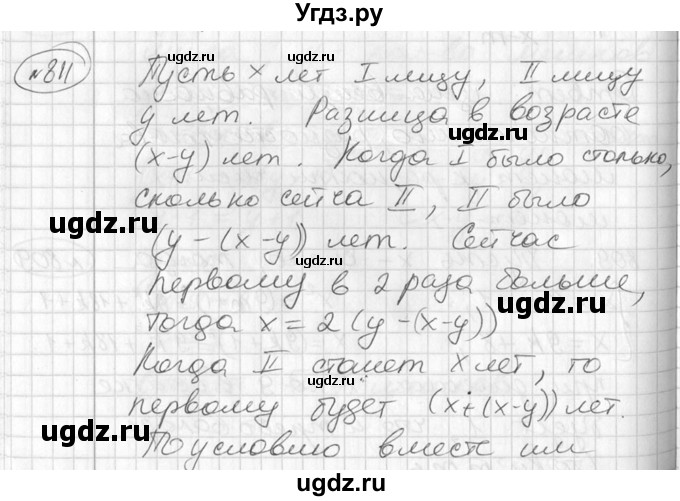 Угдз.ру
№811
Пусть x лет I лицу, II лицу
y лет. Разница в возрасте
(x-y) лет. Когда I было столько,
сколько сейча II, II было
(y-(x-y)) лет. Сейчас
первому в 2 раза больше,
тогда x=2(y-(x-y))
Когда II станет x лет, то
первому будет (x+(x-y)) лет.
По условию вместе им
ugdz.ru
ugdz.ru
ugdz.ru
ugdz.ru
ugdz.ru
ugdz.ru
ugdz.ru
ugdz.ru
ugdz.ru
ugdz.ru